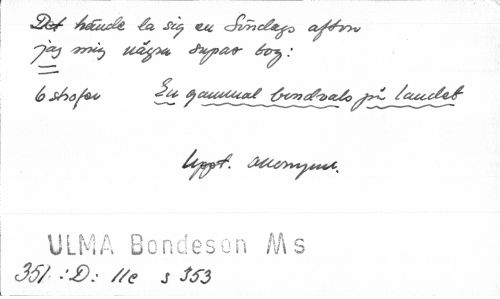 Det hände la sig en Söndags afton
jag mig några supar tog:
6 strofer En gammal bondvals på landet
Uppt. anonym.
ULMA Bondeson Ms
351:D: 11c s 353